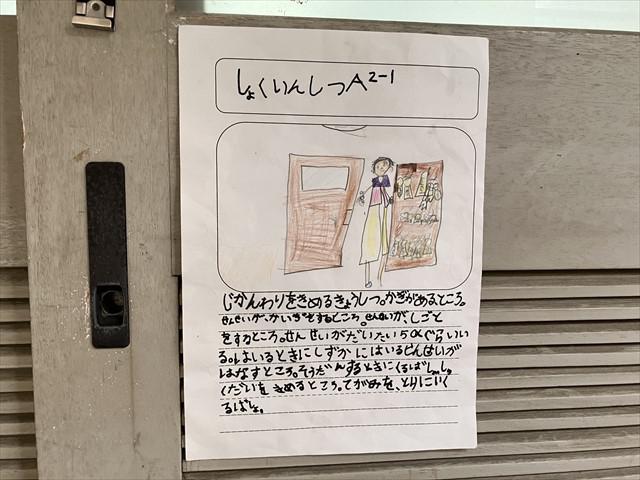 しょくいんしつA2-1
じかんわりをきめるきょうしつ。かぎがあるところ。
せんせいがかいぎをするところ。せんせいがしごと
をするところ。せんせいがだいたい50人ぐらいい
る。はいるときにしずかにはいる。せんせいが
はなすところ。そうだんするときにくるばしょ。しゅ
くだいをきめるところ。てがみを、とりにいく
るばしょ。